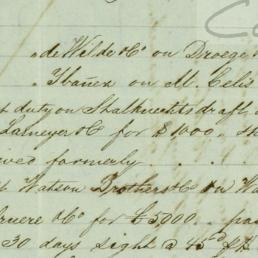 de Wilde & Co on Droege
Ybañez on M. Celis
duty on Stalknechts draft
Lameyer & Co for $1000
ived formerly
Watson Brothers & Co on Wa
ruere & Co for £5000
30 days sight @ 45d